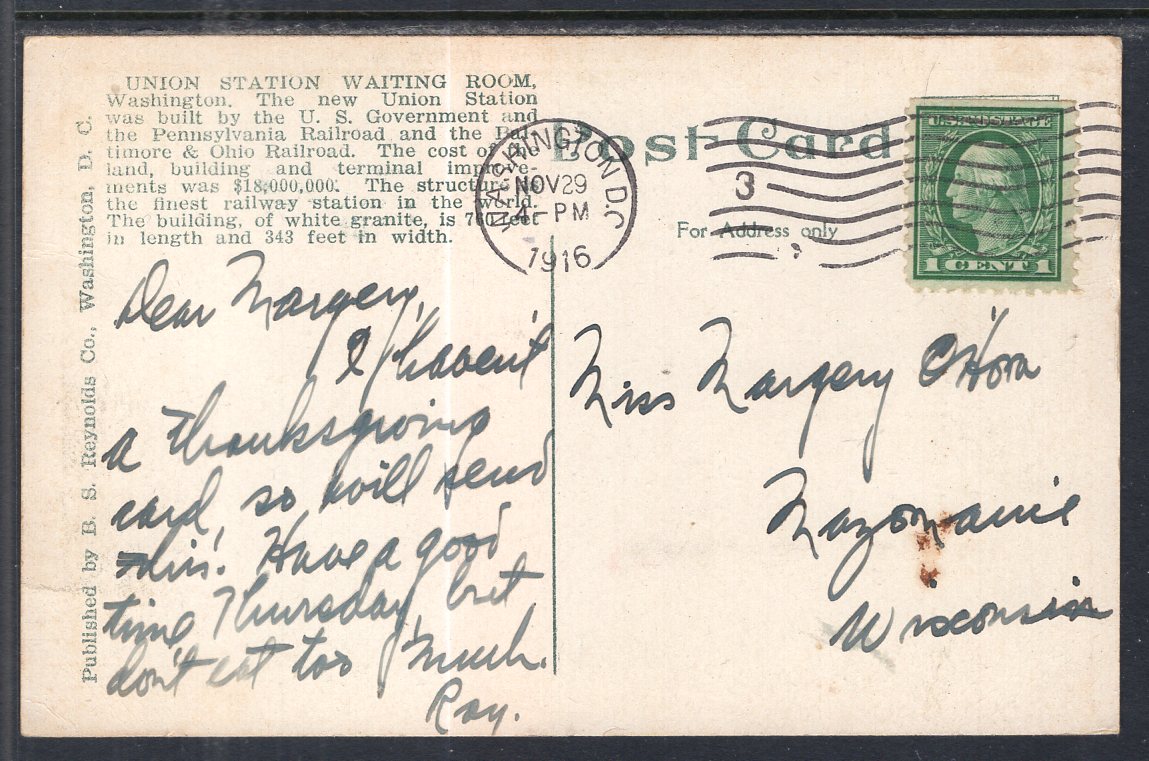 UNION STATION WAITING ROOM,
Washington. The new Union Station
was built by the U. S. Government and
the Pennsylvania Railroad and the Bal-
timore & Ohio Railroad. The cost of the
land, building and terminal improve-
ments was $18,000,000. The structure is
the finest railway station in the world.
The building, of white granite, is 760 feet
in length and 343 feet in width.
Published by B. S. Reynolds Co., Washington, D. C.
Post Card
For Address only
WASHINGTON D.C
NOV 29
4 - PM
1916
3
U.S. POSTAGE
1 CENT 1
Dear Margery,
I haven't
a Thanksgiving
card, so will send
this. Have a good
time Thursday, but
don't eat too much.
Ray.
Miss Margery O'Hora
Mazomanie
Wisconsin